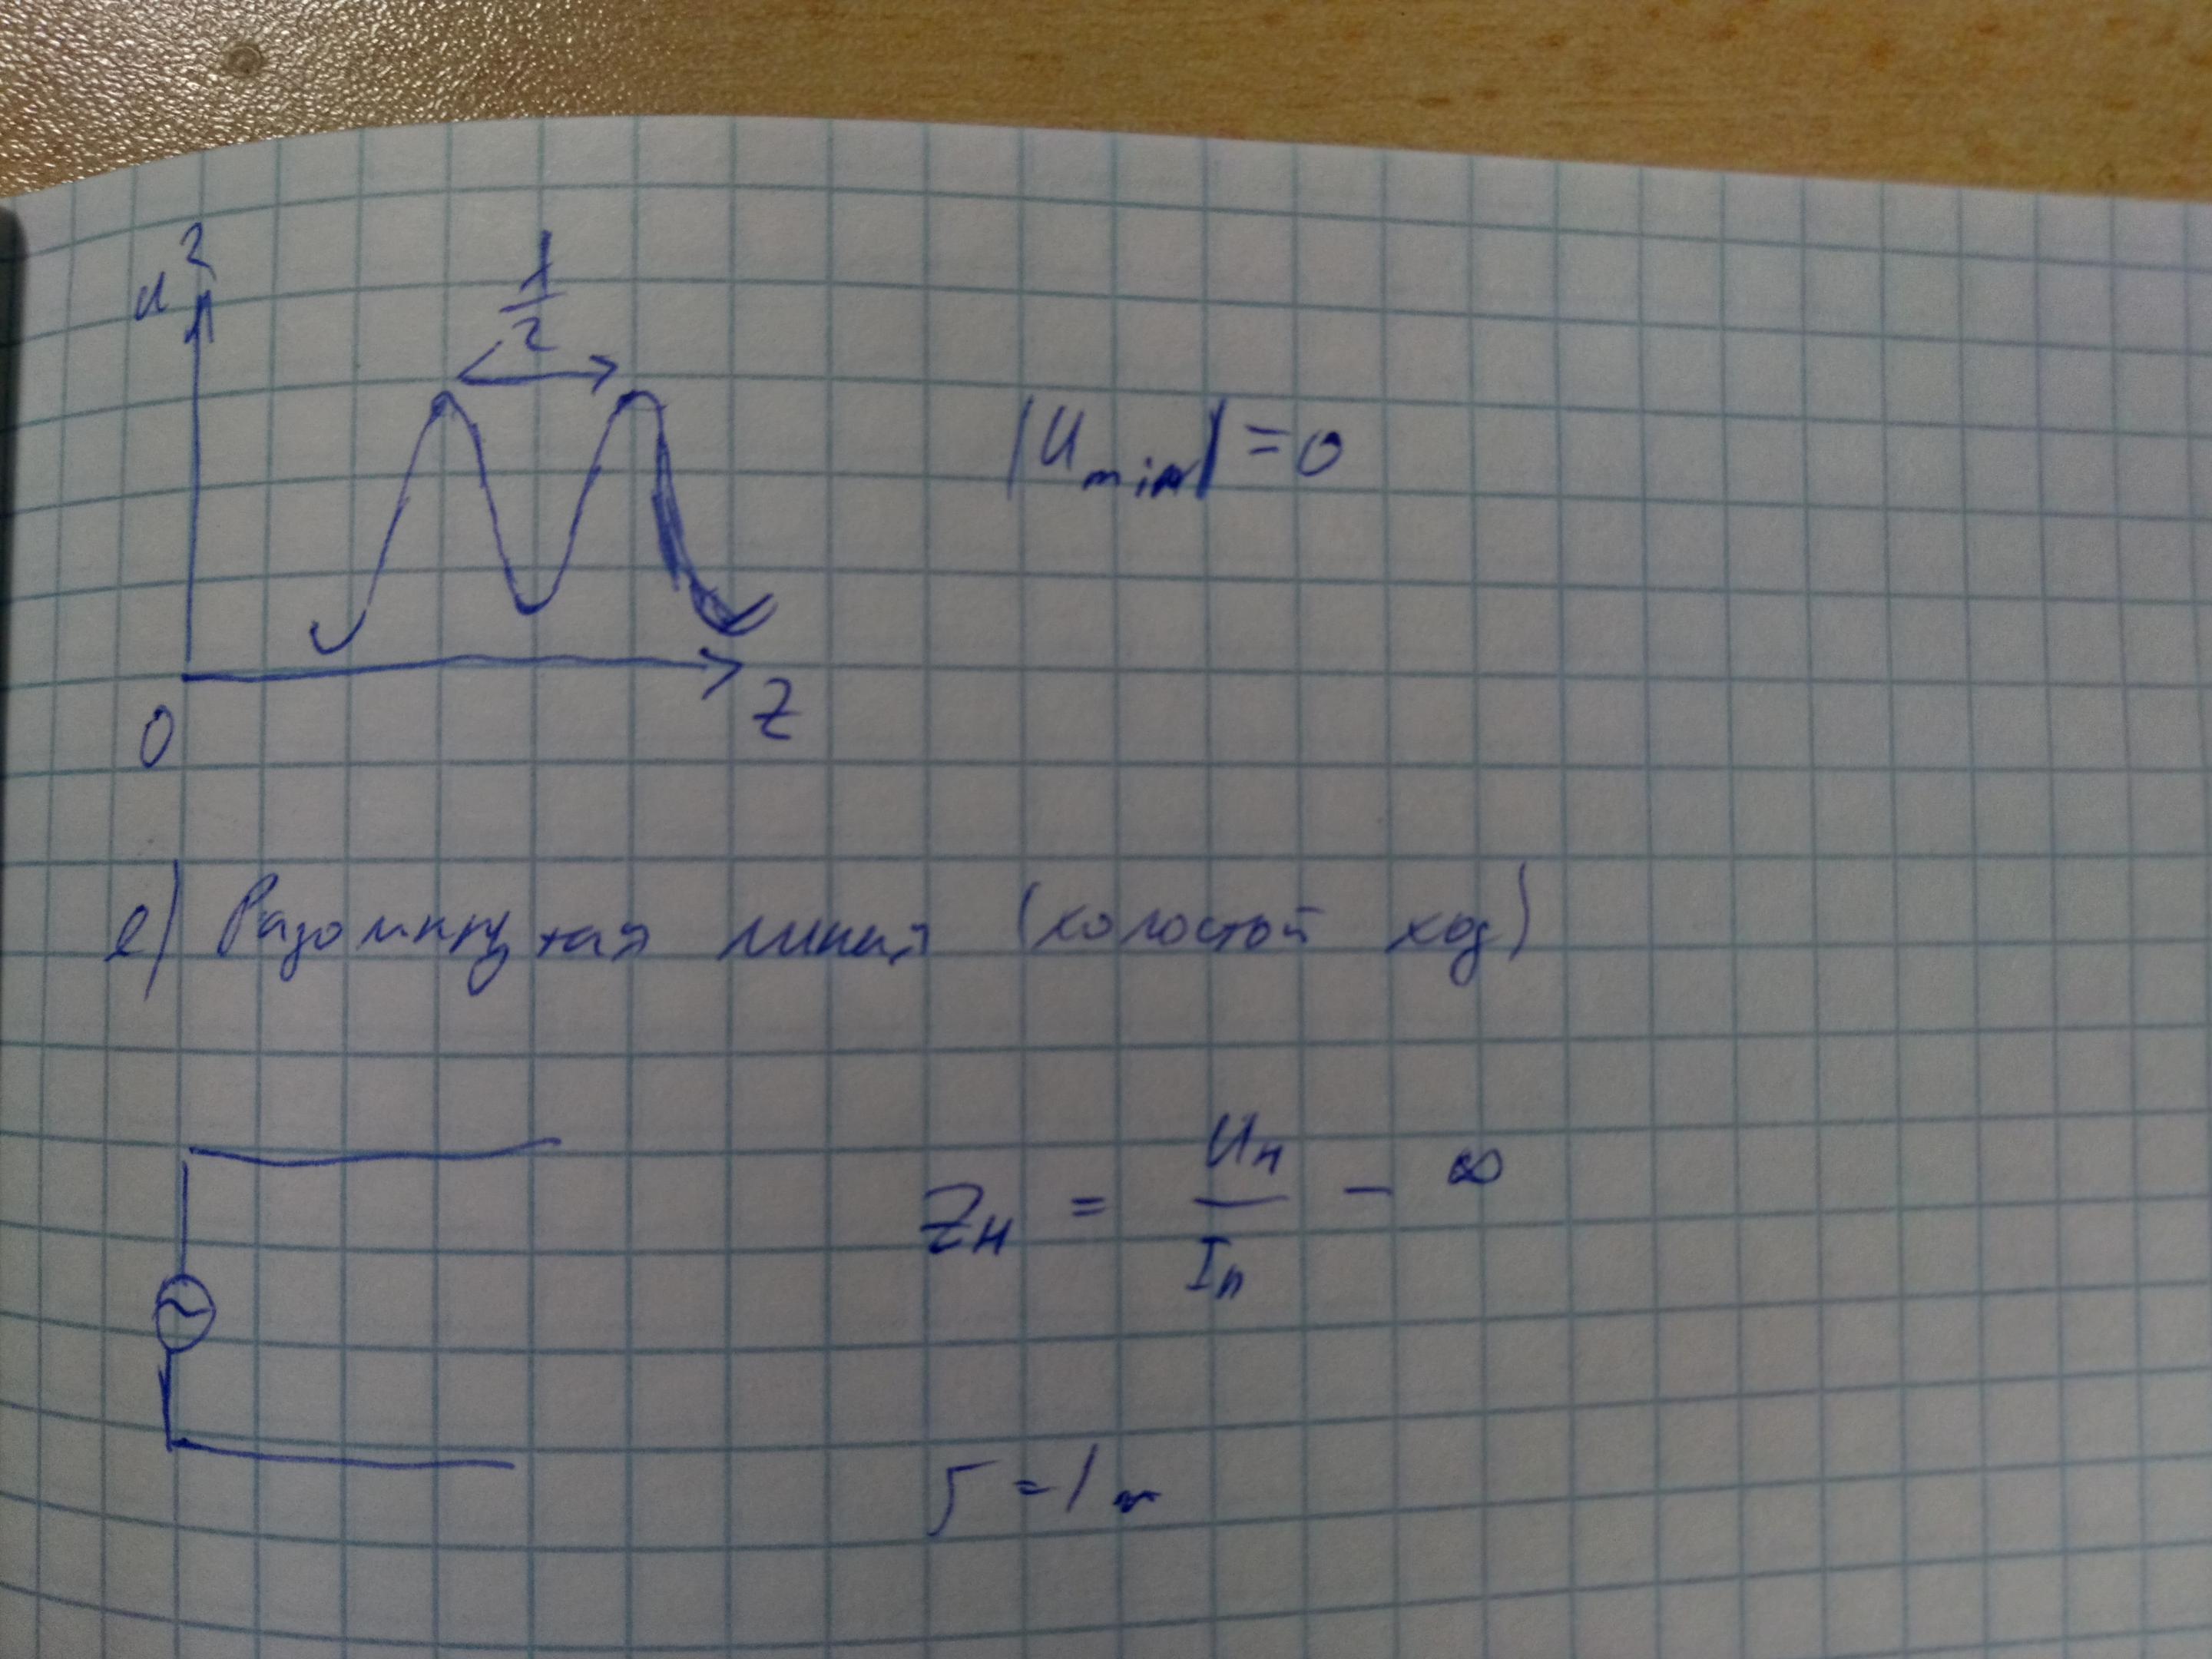 u²
1/2
|U min| = 0
0
Z
e) Разомкнутая линия (холостой ход)
Zн = Uн / Iн - ∞
Г = 1